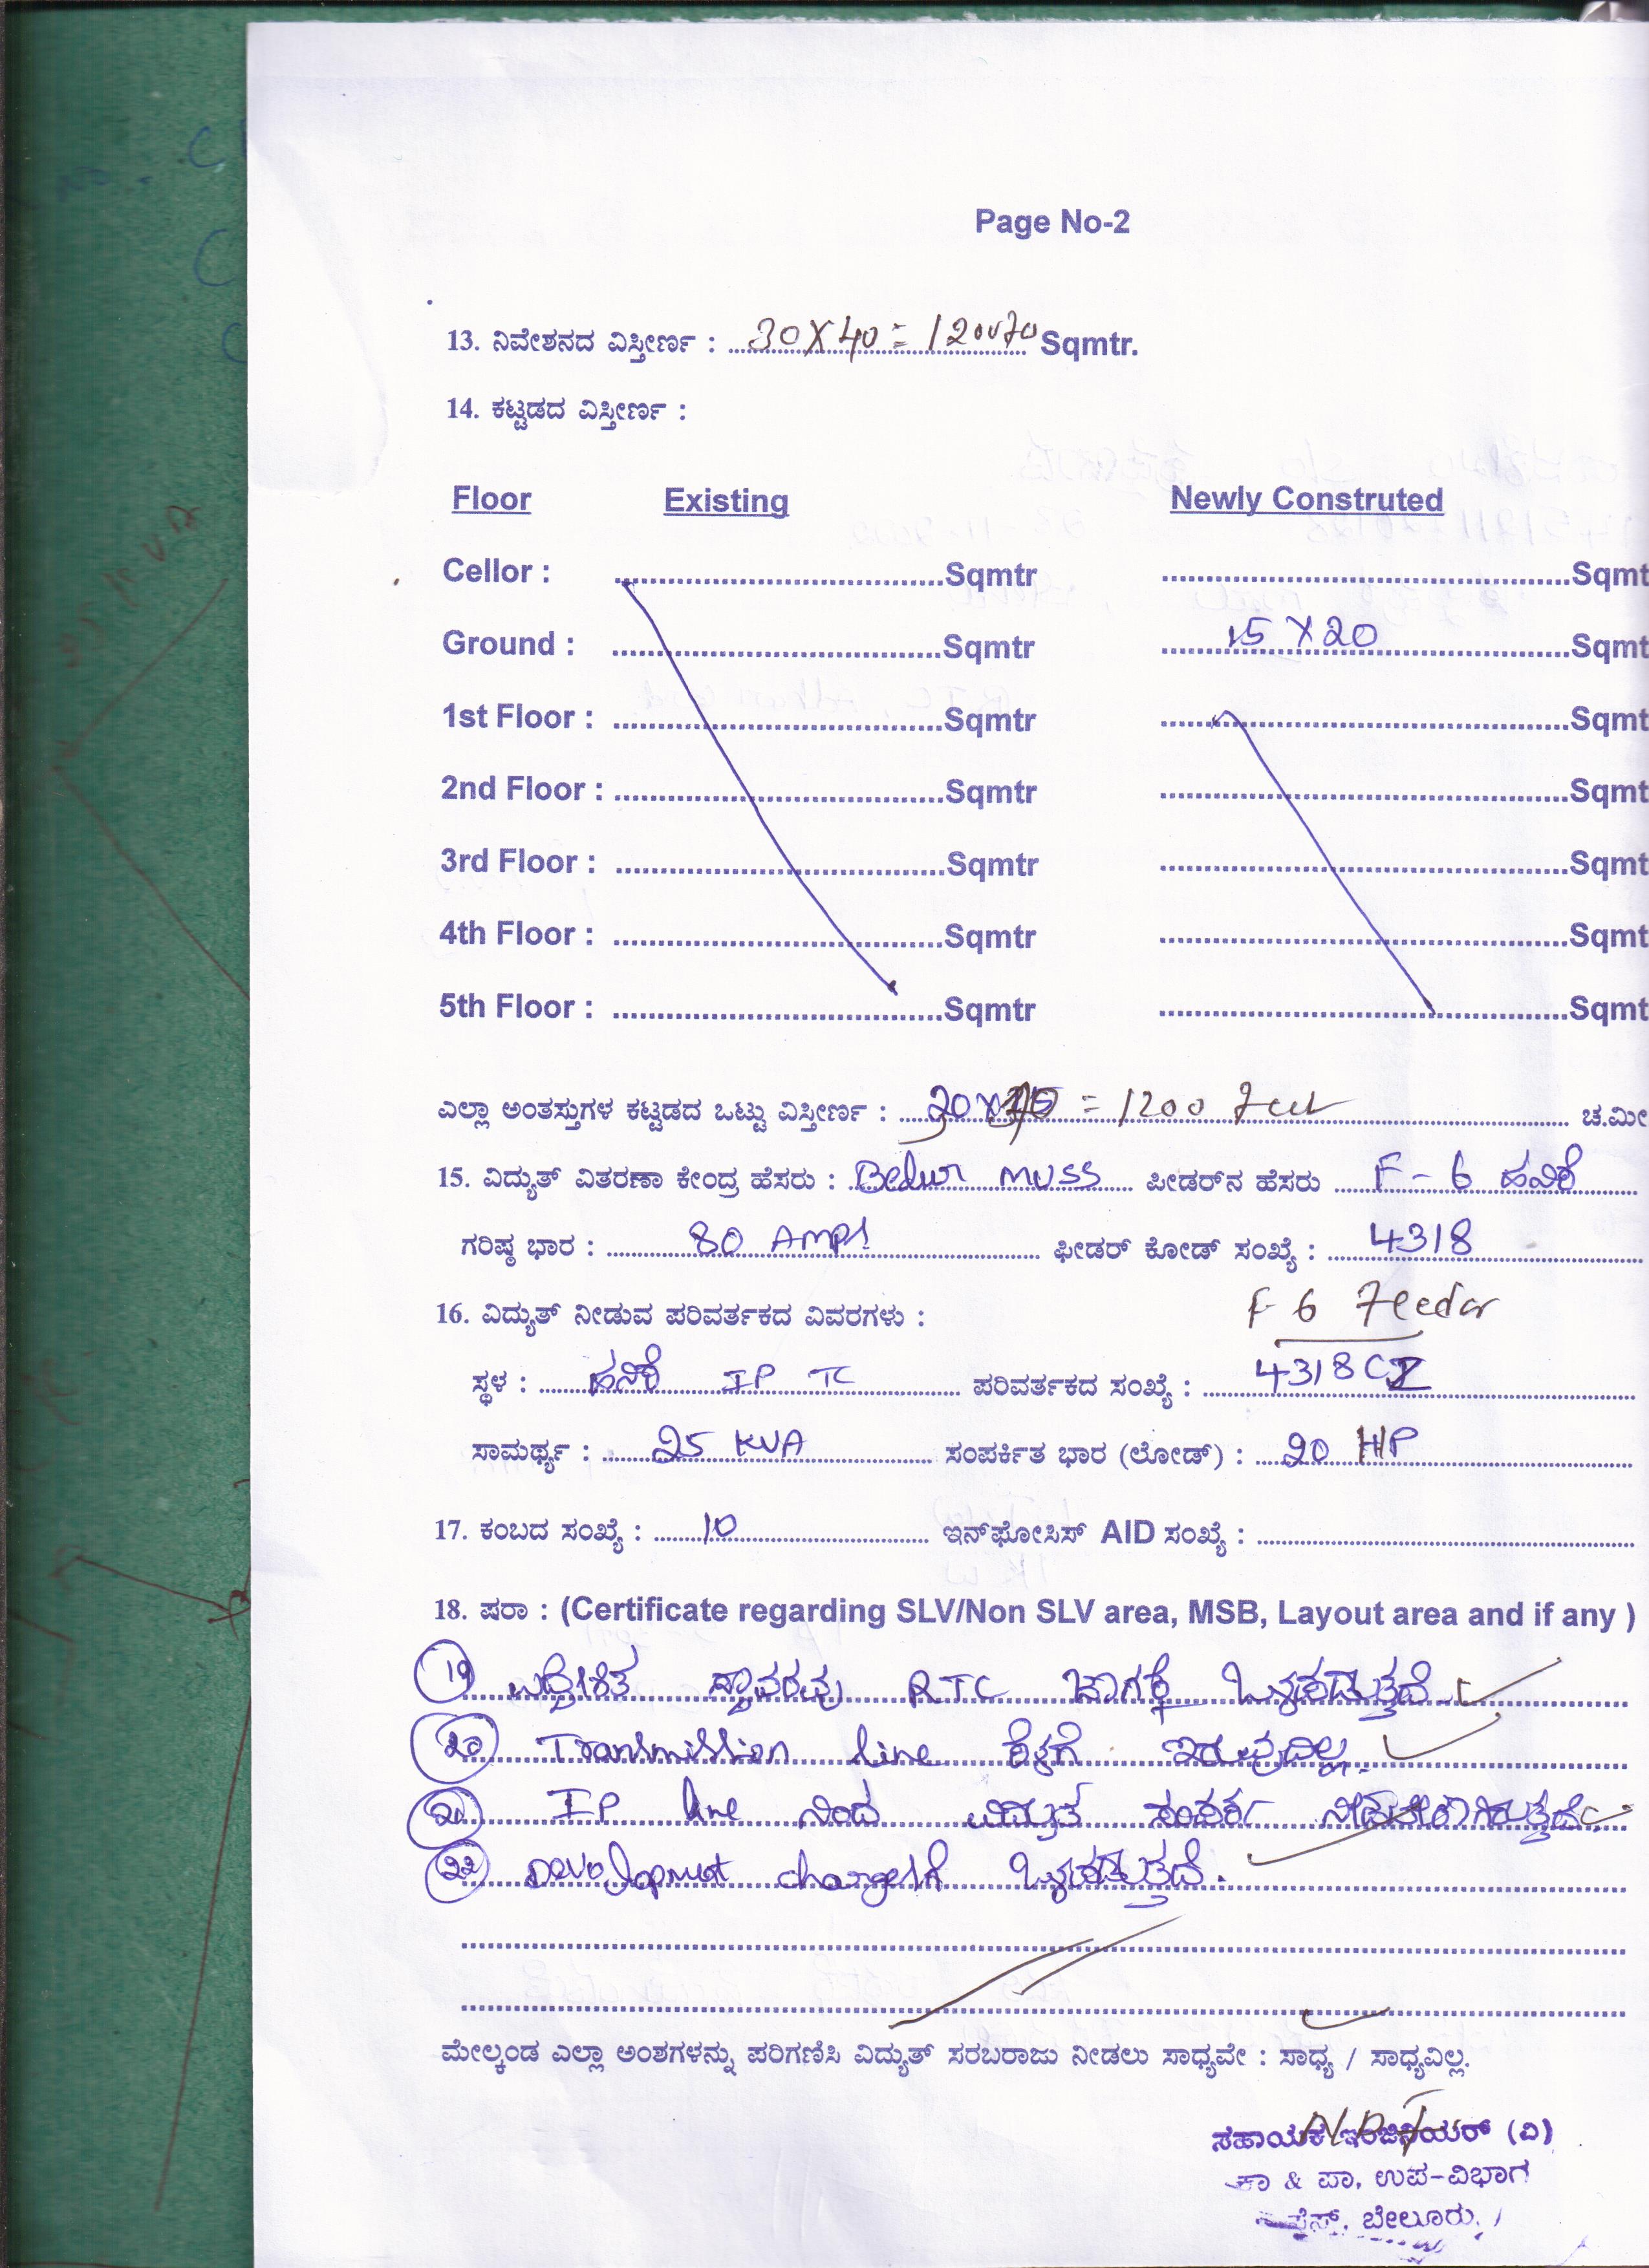 Page No-2
13. ನಿವೇಶನದ ವಿಸ್ತೀರ್ಣ : 30X40= 1200 Sqmtr.
14. ಕಟ್ಟಡದ ವಿಸ್ತೀರ್ಣ :
Floor Existing Newly Construted
Cellor : Sqmtr Sqmt
Ground : Sqmtr 15 X 20 Sqmt
1st Floor : Sqmtr Sqmt
2nd Floor : Sqmtr Sqmt
3rd Floor : Sqmtr Sqmt
4th Floor : Sqmtr Sqmt
5th Floor : Sqmtr Sqmt
ಎಲ್ಲಾ ಅಂತಸ್ತುಗಳ ಕಟ್ಟಡದ ಒಟ್ಟು ವಿಸ್ತೀರ್ಣ : = 1200 ಚ.ಮೀ
15. ವಿದ್ಯುತ್ ವಿತರಣಾ ಕೇಂದ್ರ ಹೆಸರು : Belur MUSS ಪೀಡರ್‌ನ ಹೆಸರು F-6
ಗರಿಷ್ಠ ಭಾರ : 80 Amps ಫೀಡರ್ ಕೋಡ್ ಸಂಖ್ಯೆ : 4318
16. ವಿದ್ಯುತ್ ನೀಡುವ ಪರಿವರ್ತಕದ ವಿವರಗಳು : F 6 Feeder
ಸ್ಥಳ : IP TC ಪರಿವರ್ತಕದ ಸಂಖ್ಯೆ :
ಸಾಮರ್ಥ್ಯ : 25 KVA ಸಂಪರ್ಕಿತ ಭಾರ (ಲೋಡ್) : 20 HP
17. ಕಂಬದ ಸಂಖ್ಯೆ : 10 ಇನ್‌ಫೋಸಿಸ್ AID ಸಂಖ್ಯೆ :
18. ಷರಾ : (Certificate regarding SLV/Non SLV area, MSB, Layout area and if any )
19 ಸ್ಥಾವರವು RTC ಜಾಗಕ್ಕೆ ಒಳಪಡುತ್ತದೆ.
20 Transmission line ಕೆಳಗೆ ಇರುವುದಿಲ್ಲ.
21 IP line ನಿಂದ ವಿದ್ಯುತ ಸಂಪರ್ಕ
22 Development ಒಳಪಡುತ್ತದೆ.
ಮೇಲ್ಕಂಡ ಎಲ್ಲಾ ಅಂಶಗಳನ್ನು ಪರಿಗಣಿಸಿ ವಿದ್ಯುತ್ ಸರಬರಾಜು ನೀಡಲು ಸಾಧ್ಯವೇ : ಸಾಧ್ಯ / ಸಾಧ್ಯವಿಲ್ಲ.
ಸಹಾಯಕ ಇಂಜಿನಿಯರ್ (ವಿ)
ಕಾ & ಪಾ, ಉಪ-ವಿಭಾಗ
ಬೇಲೂರು,